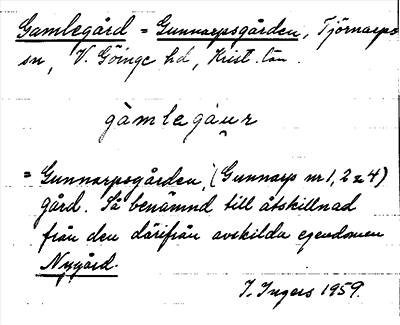 Gamlegård = Gunnarpsgården, Tjörnarps
sn, V. Göinge hd, Krist. län.
gàmlegåu̯r
= Gunnarpsgården, (Gunnarp nr 1, 2 o 4)
gård. Så benämnd till åtskillnad
från den därifrån avskilda egendomen
Nygård.
I. Ingers 1959.